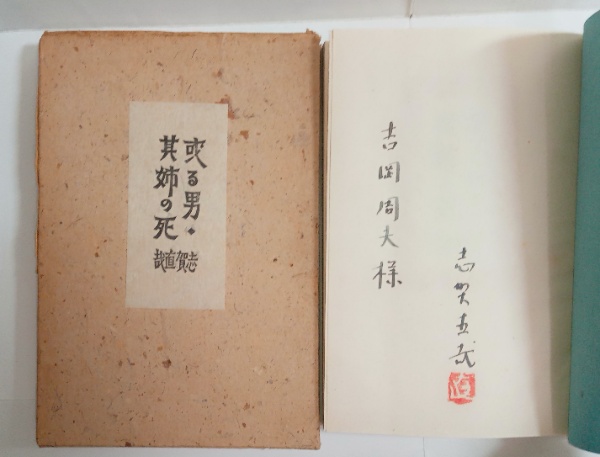 或る男・
其姉の死
志賀直哉
吉岡周夫様
志賀直哉
直